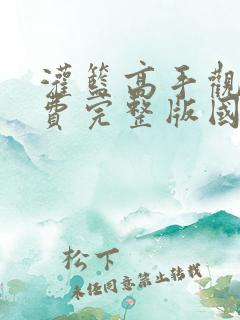 灌籃高手觀
費完整版國
松下
未经同意禁止转载